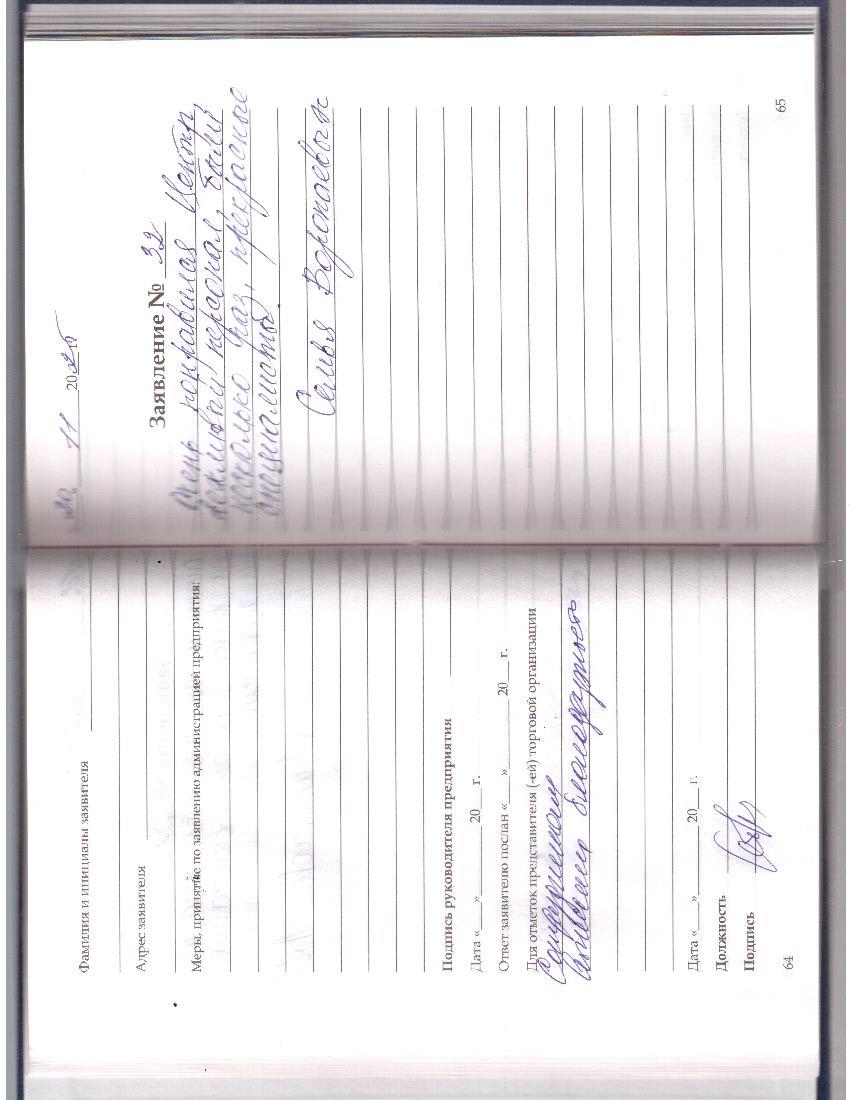 Фамилия и инициалы заявителя
Адрес заявителя
Меры, принятые по заявлению администрацией предприятия:
Подпись руководителя предприятия
Дата «___» ________ 20___ г.
Ответ заявителю послан «___» ________ 20___ г.
Для отметок представителя (-ей) торговой организации
Сотрудникам
благодарность
Дата «___» ________ 20___ г.
Должность
Подпись
64
20 11 2025
Заявление № 32
Очень понравился Центр,
вежливый персонал, были
несколько раз, прекрасные
специалисты.
Семья Воропаевых
65